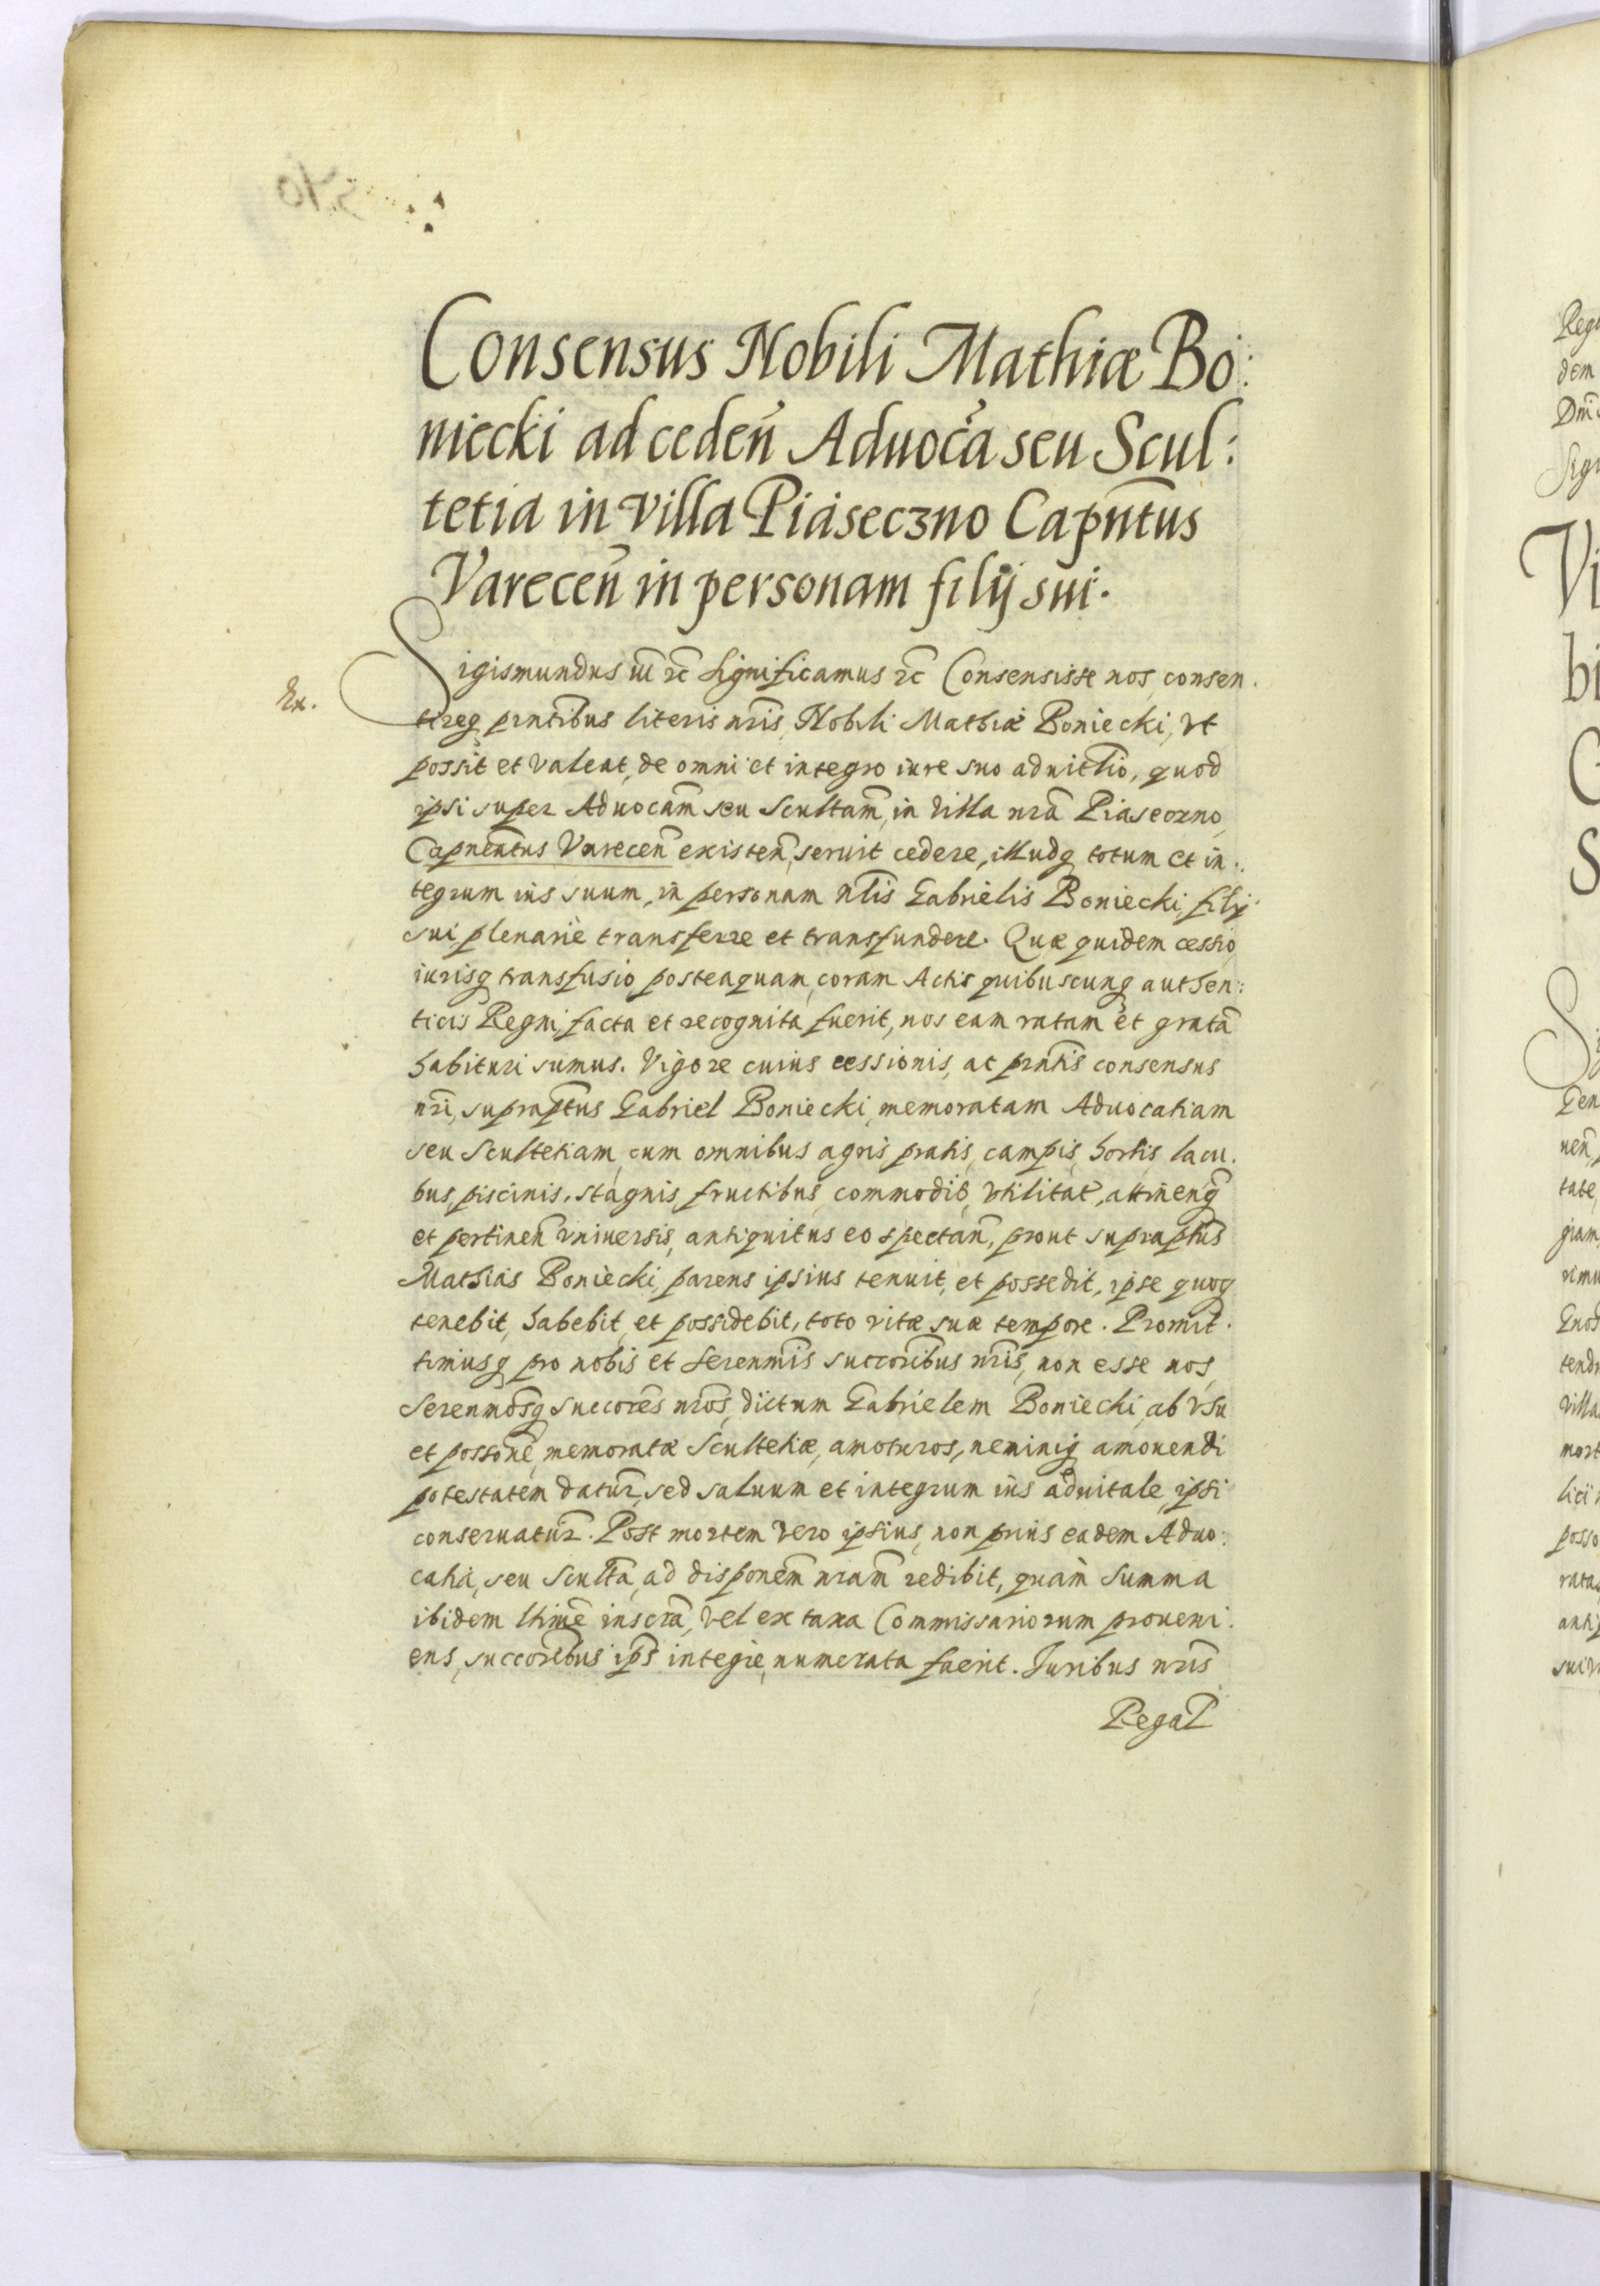 Consensus Nobili Mathiæ Bo:
niecki ad ceden̄ Aduoca͂ seu Scul:
tetia in villa Piaseczno Capn̄tus
Varecen̄ in personam filij sui.
Ex.
Sigismundus iii͞ rc̄ Significamus rc̄ Consensisse nos, consen.
tireq prn̄tibus literis nr̄is, Nobili Mathiæ Boniecki, vt
possit et valeat, de omni et integro iure suo aduitlio, quod
ipsi super Aduocam̄ seu Scultam̄, in villa nrā Piaseczno,
Capnea͞tus Varecen̄ existen̄, seruit cedere, illudq totum et in:
tegrum ius suum, in personam nl̄is Gabrielis Boniecki, filij
sui plenariè transferre et transfundere. Quæ quidem cessio
iurisq transfusio, posteaquam, coram Actis quibuscunq authen:
ticis Regni, facta et recognita fuerit, nos eam ratam et gratā
habituri sumus. Vigore cuius cessionis, ac prn̄tis consensus
nr̄i, suprap̄tus Gabriel Boniecki, memoratam Aduocatiam
seu Scultetiam, cum omnibus agris pratis, campis, hortis, lacu.
bus, piscinis, stagnis, fructibus, commodis, vtilitat̄, attinen̄q
et pertinen̄ vniuersis, antiquitus eo spectan̄, prout suprap̄tus
Mathias Boniecki, parens ipsius tenuit, et possedit, ipse quoq
tenebit, habebit, et possidebit, toto vitæ suæ tempore. Promit.
timusq pro nobis et Serenm̄is succoribus nr̄is, non esse nos,
Serenmōsq succorēs nr̄os, dictum Gabrielem Boniecki, ab vsu
et possonē, memoratæ Scultetiæ, amoturos, neminiq amouendi
potestatem datur̄, sed saluum et integrum ius aduitale, ipsi
conseruatur̄. Post mortem vero ipsius, non prius eadem Aduo:
catia, seu Scultā, ad disponem̄ nram̄ redibit, quàm Summa
ibidem ltimē inscrā, vel ex taxa Commissariorum proueni.
ens, succoribus ips̄ integrè, numerata fuerit. Iuribus nr̄is
Regal